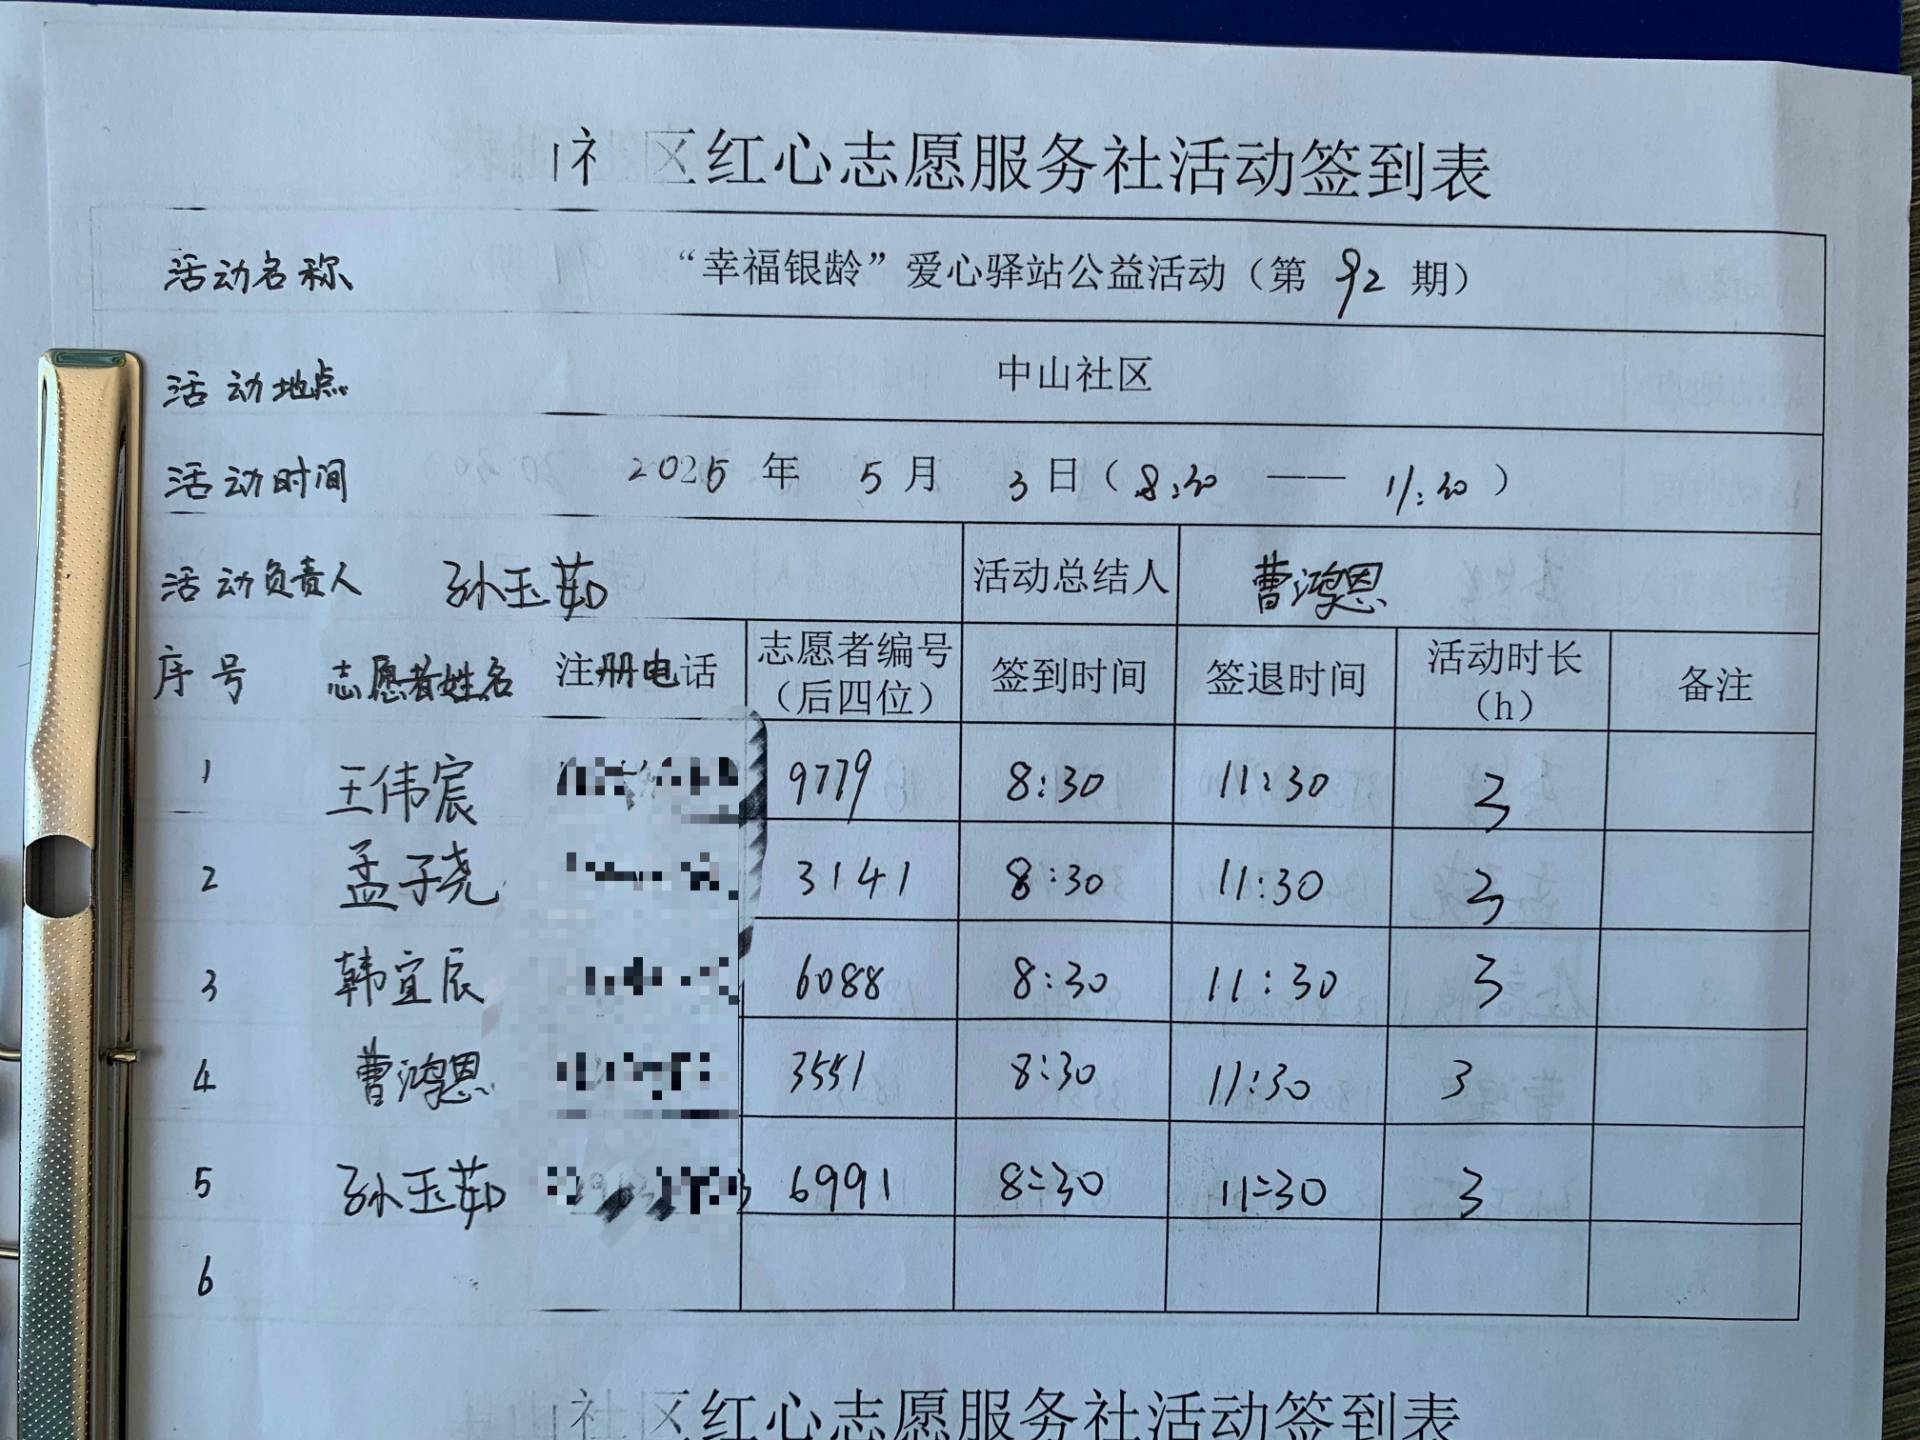 社区红心志愿服务社活动签到表
活动名称 “幸福银龄”爱心驿站公益活动（第 92 期）
活动地点 中山社区
活动时间 2025 年 5 月 3 日（8:30 —— 11:30）
活动负责人 孙玉茹 活动总结人 曹鸿恩
序号 志愿者姓名 注册电话 志愿者编号（后四位） 签到时间 签退时间 活动时长（h） 备注
1 王伟宸 9779 8:30 11:30 3
2 孟子尧 3141 8:30 11:30 3
3 韩宜辰 6088 8:30 11:30 3
4 曹鸿恩 3551 8:30 11:30 3
5 孙玉茹 6991 8:30 11:30 3
6
山社区红心志愿服务社活动签到表